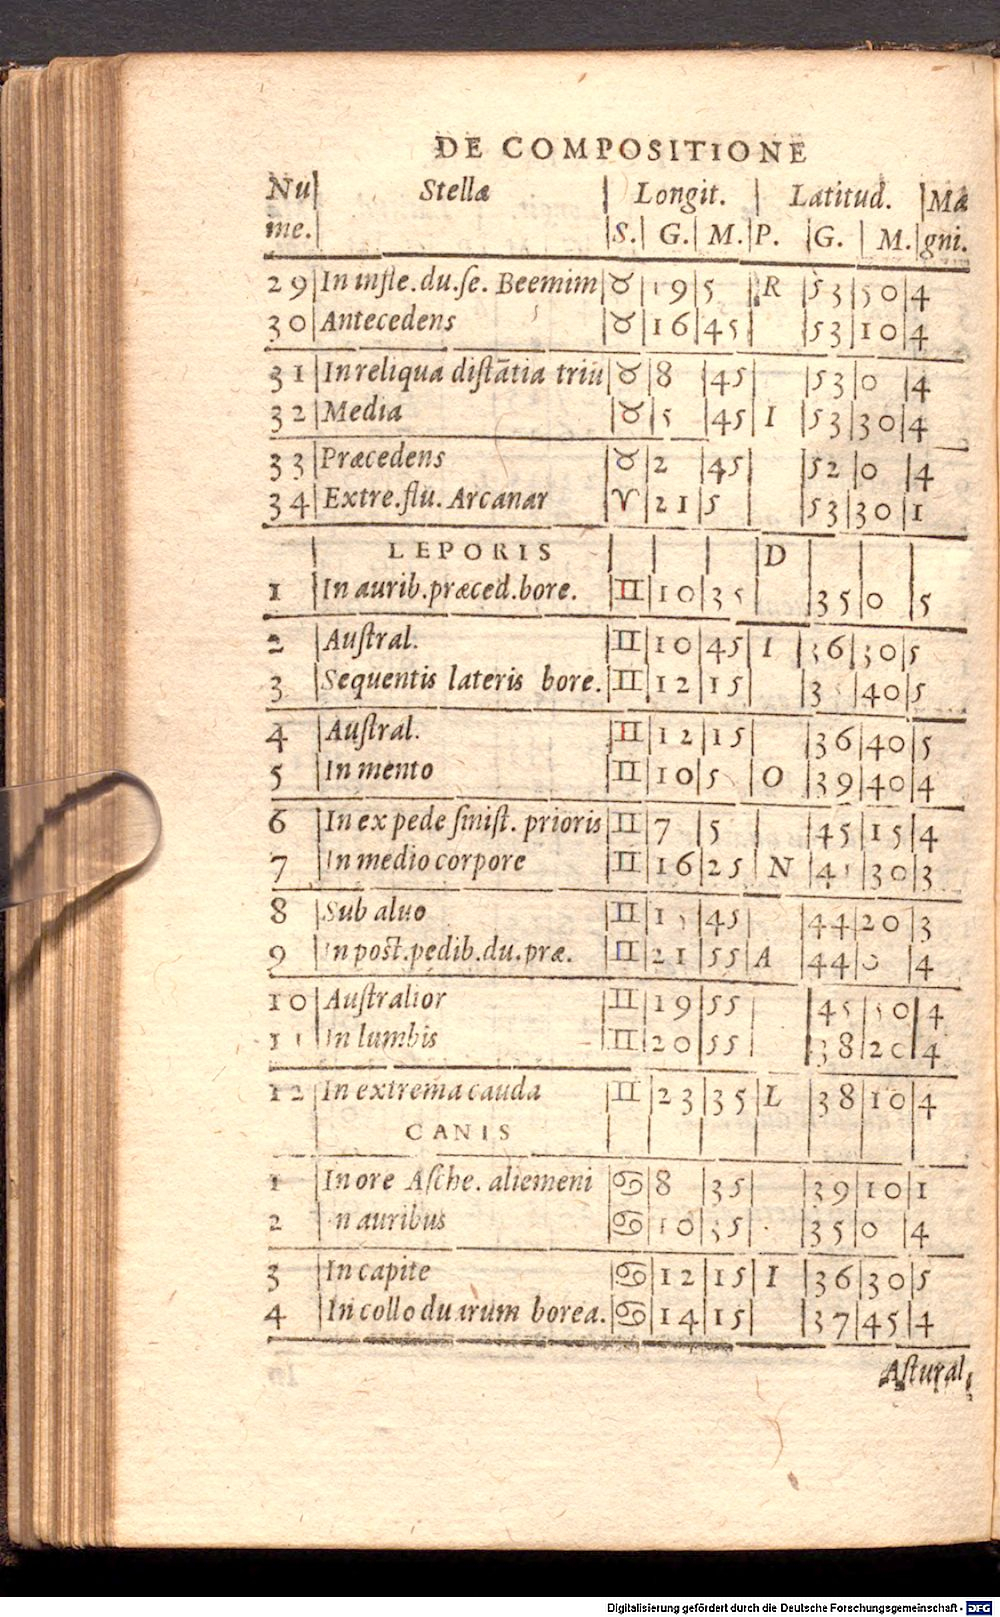 DE COMPOSITIONE
Nu| Stellæ | Longit. | Latitud. |Mæ
me.| |S.| G.| M.|P. |G. | M.|gni.
29|In infle.du.ſe. Beemim|♉|19|5 |R |53|50|4
30|Antecedens |♉|16|45| |53|10|4
31|In reliqua diſtātia triū|♉|8 |45| |53|0 |4
32|Media |♉|5 |45|I |53|30|4
33|Præcedens |♉|2 |45| |52|0 |4
34|Extre.flu. Arcanar |♈|21|5 | |53|30|1
| LEPORIS | | | |D | | |
1 |In aurib.præced.bore. |♊|10|35| |35|0 |5
2 |Auſtral. |♊|10|45|I |36|30|5
3 |Sequentis lateris bore.|♊|12|15| |3 |40|5
4 |Auſtral. |♊|12|15| |36|40|5
5 |In mento |♊|10|5 |O |39|40|4
6 |In ex pede ſiniſt. prioris|♊|7 |5 | |45|15|4
7 |In medio corpore |♊|16|25|N |41|30|3
8 |Sub aluo |♊| |45| |44|20|3
9 |In poſt.pedib.du.præ. |♊|21|55|A |44|0 |4
10|Auſtralior |♊|19|55| |45|50|4
11|In lumbis |♊|20|55| |38|20|4
12|In extrema cauda |♊|23|35|L |38|10|4
| CANIS | | | | | | |
1 |In ore Aſche. aliemeni |♋|8 |35| |39|10|1
2 |In auribus |♋|10|35| |35|0 |4
3 |In capite |♋|12|15|I |36|30|5
4 |In collo duarum borea.|♋|14|15| |37|45|4
Aſtural,
Digitalisierung gefördert durch die Deutsche Forschungsgemeinschaft - DFG